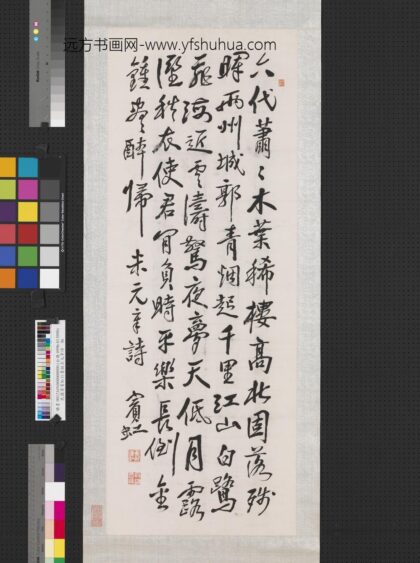 远方书画网-www.yfshuhua.com
六代蕭〻木葉稀樓高北固落殘
暉兩州城郭青烟起千里江山白鷺
飛海近雲濤驚夜夢天低月露
溼秋衣使君肎負時平樂長倒金
鍾盡醉歸 米元章詩 賓虹